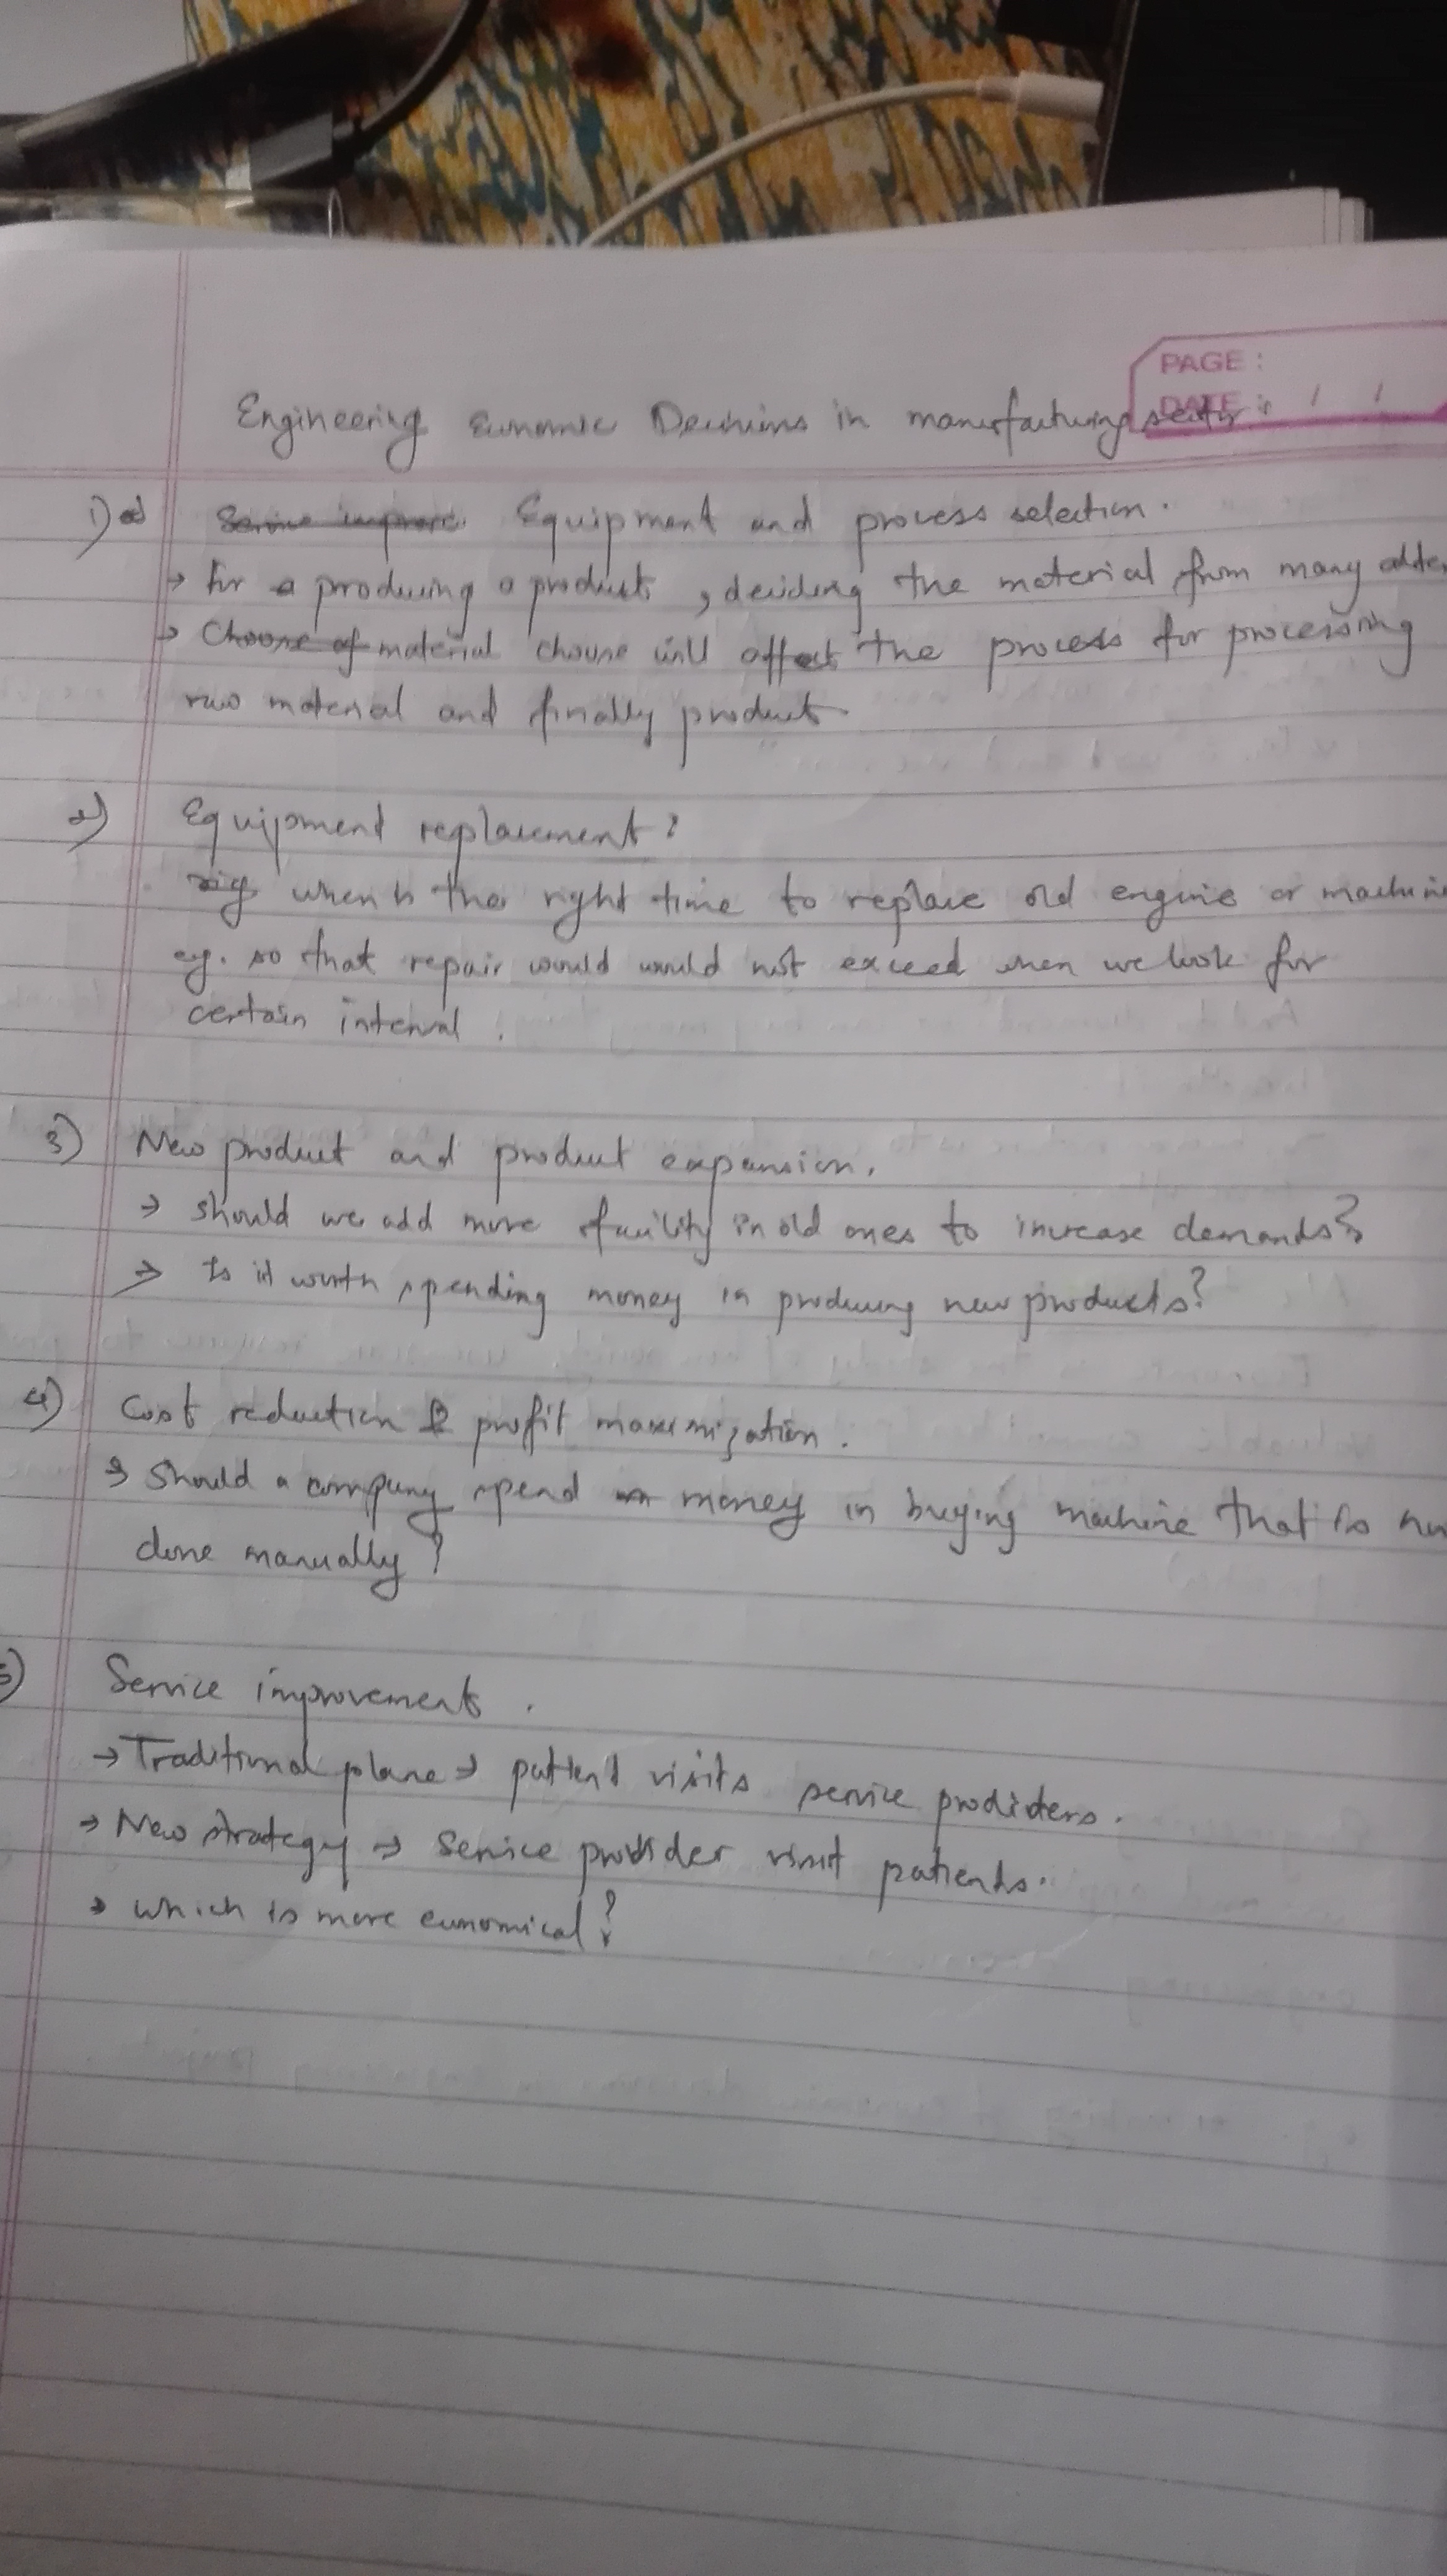 PAGE :
DATE : / /
Engineering Economic Decisions in manufacturing sector
1) Equipment and process selection.
→ For producing a product, deciding the material from many
→ material choose will affect the process for processing
raw material and finally product
2) Equipment replacement?
when is the right time to replace old engine or
eg. so that repair would would not exceed when we look for
certain interval.
3) New product and product expansion.
→ should we add more facility in old ones to increase demands?
→ Is it worth spending money in producing new products?
4) Cost reduction & profit maximization.
→ Should a company spend money in buying machine that is
done manually?
5) Service improvement.
→ Traditional plane → patient visits service prodiders.
→ New strategy → Service provider visit patients.
→ which is more economical?